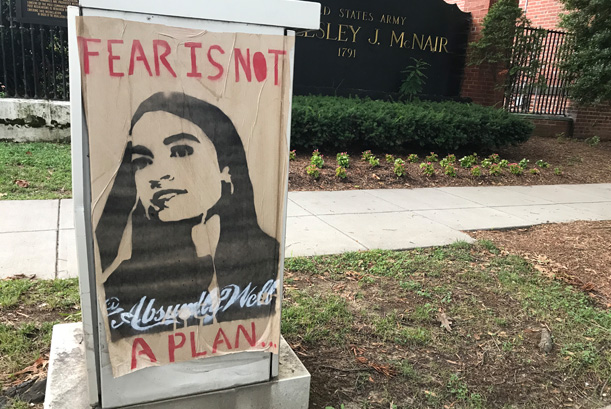 FEAR IS NOT
@AbsurdlyWell
A PLAN...
STATES ARMY
LESLEY J. McNAIR
1791